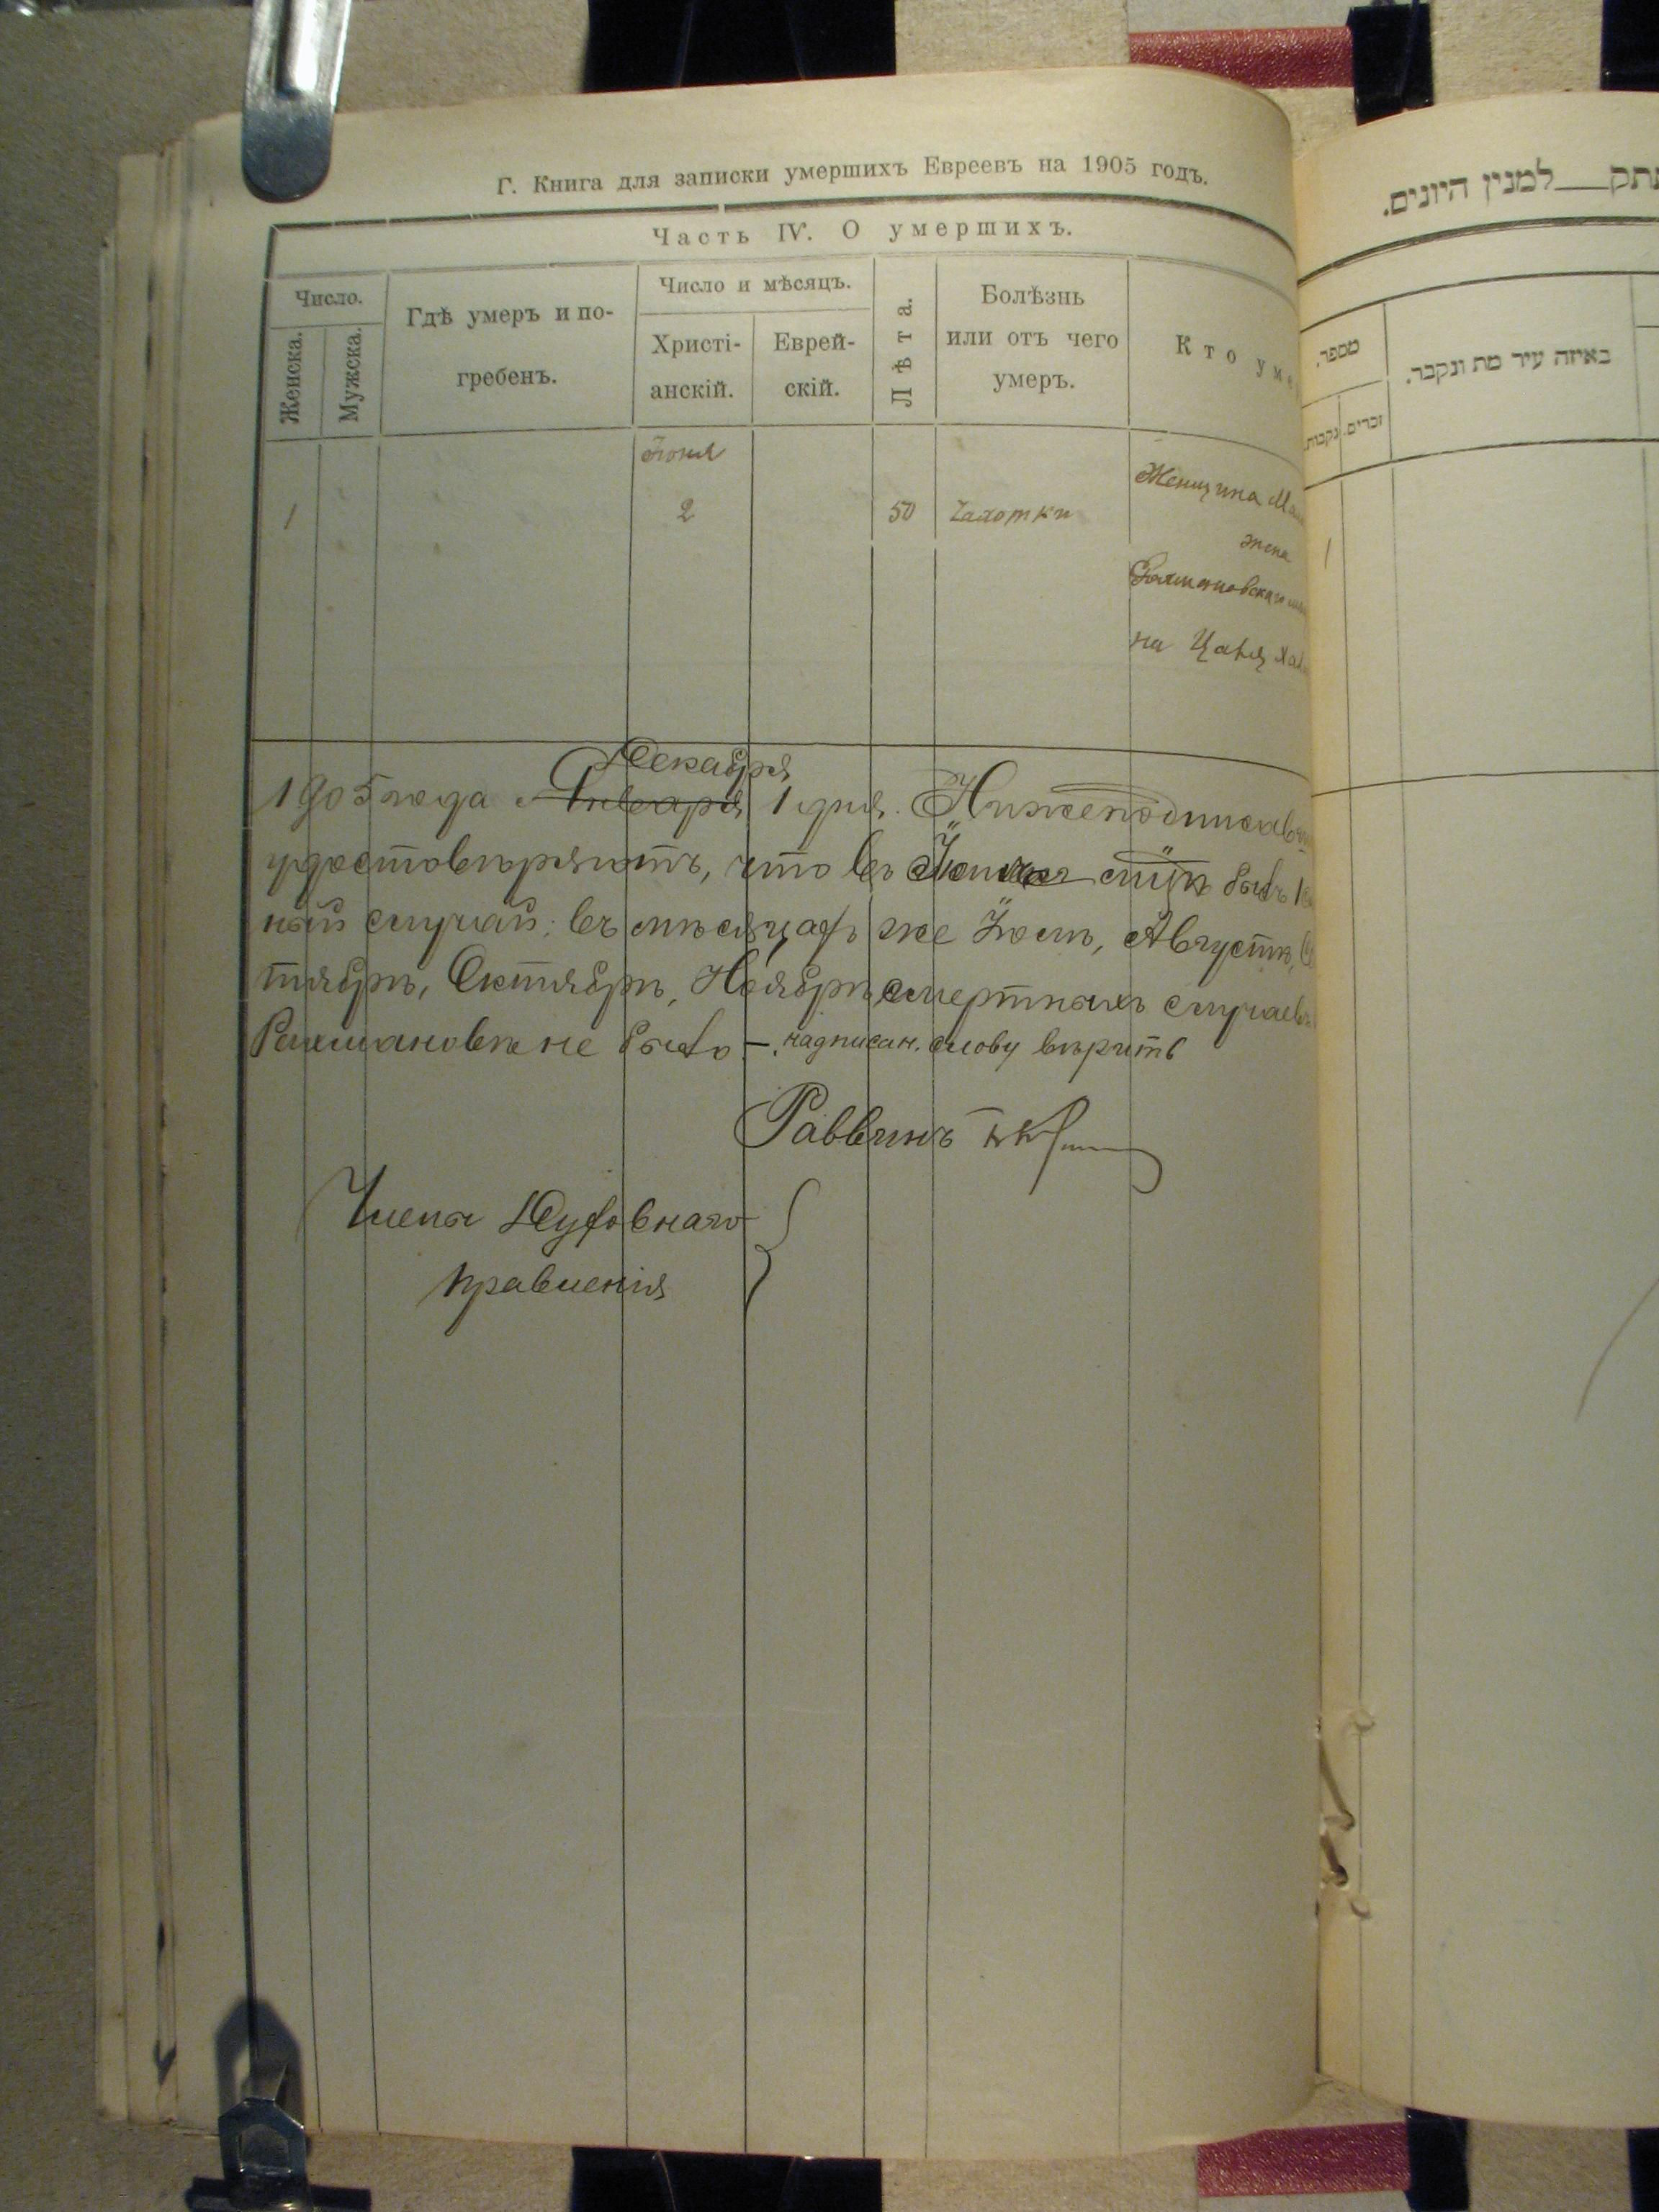 Г. Книга для записки умершихъ Евреевъ на 1905 годъ.
Часть IV. О умершихъ.
Число.
Женска.
Мужска.
Гдѣ умеръ и по-
гребенъ.
Число и мѣсяцъ.
Христі-
анскій.
Еврей-
скій.
Лѣта.
Болѣзнь
или отъ чего
умеръ.
Кто уме
Іюня
1
2
50
Чахотки
Женщина
жена
Рахмановскаго
на
Декабря
1905 года Января 1 дня. Нижеподписавш
удостовѣряютъ, что въ былъ 1
ный случай; въ мѣсяцахъ же Іюлѣ, Августѣ, Се
тябрѣ, Октябрѣ, Ноябрѣ смертныхъ случаевъ
Рахмановкѣ не было —. надписан. слову вѣрить
Раввинъ
Члены Духовнаго
правленія
למנין היונים.
מספר.
נקבות.
זכרים.
באיזה עיר מת ונקבר.
1